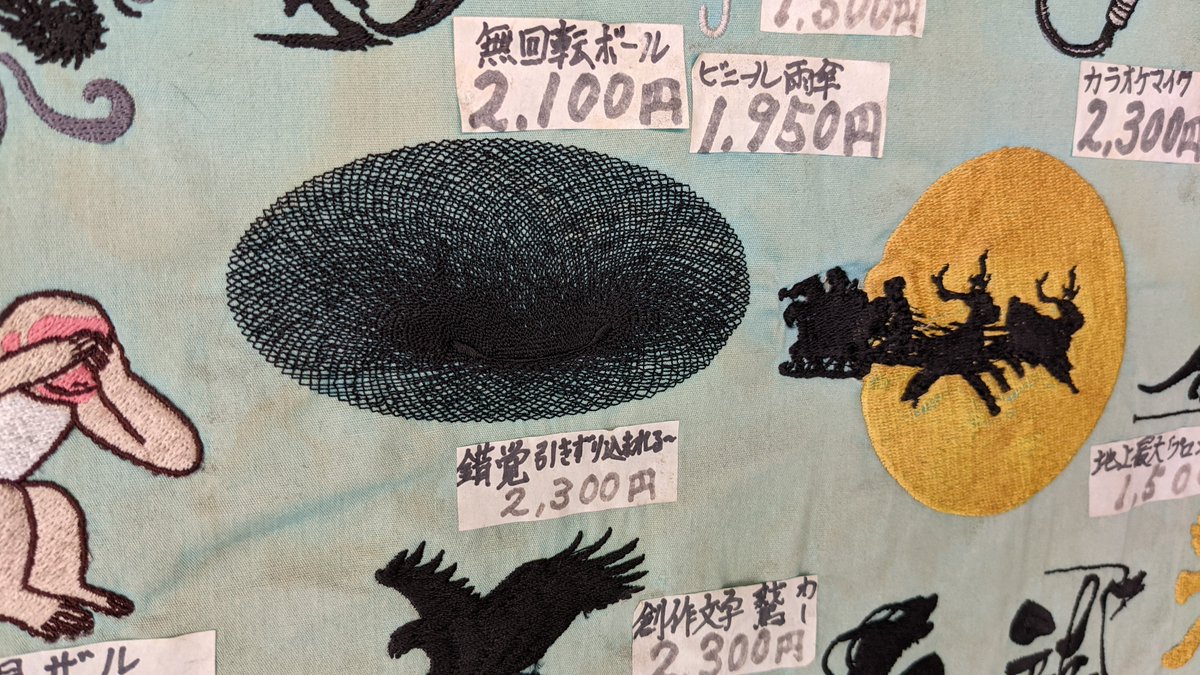 1,300円
無回転ボール
2,100円
ビニール雨傘
1,950円
カラオケマイク
2,300円
錯覚 引きずり込まれる〜
2,300円
地上最大
1,50
創作文字 鷲 カー
2,300円
ザル